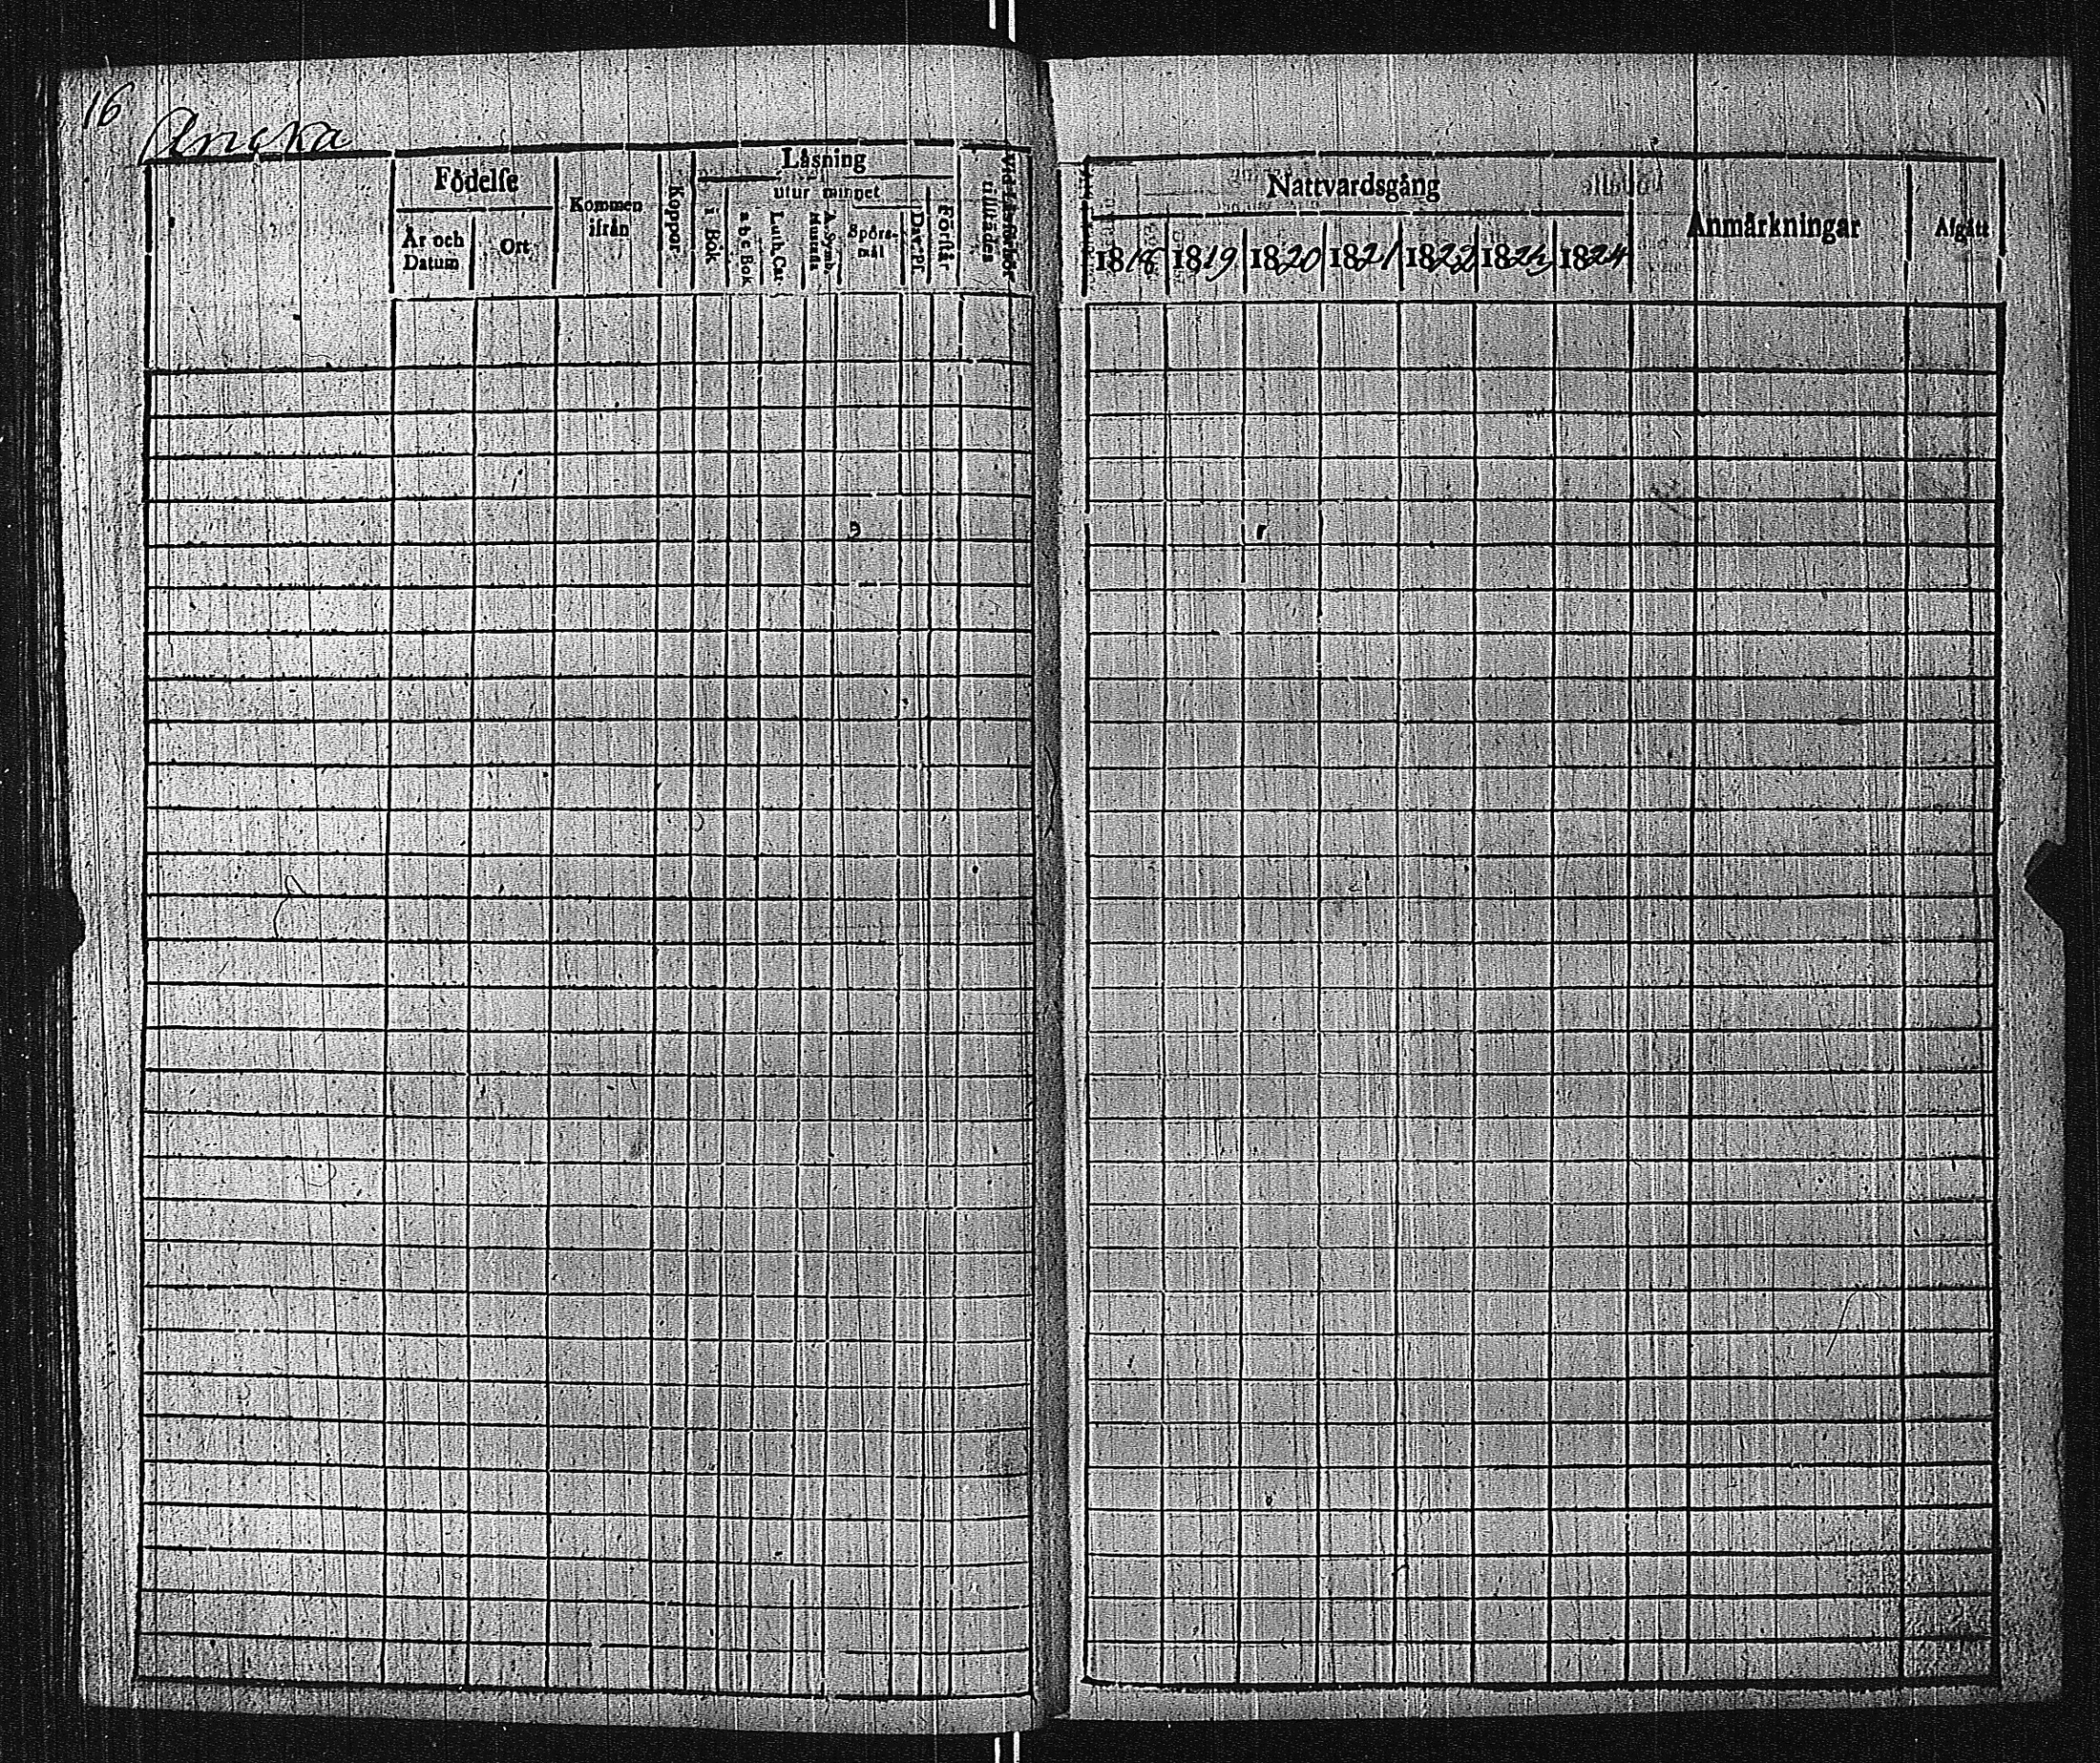 16
Ancka
Födelse
År och Datum
Ort
Kommen ifrån
Koppor
Läsning
i Bok
utur minnet
a b c Bok
Luth. Cat.
A. Symb. Hustafla
Spörs-mål
Dav. Ps.
Förstår
Nattvardsgång
1818 1819 1820 1821 1822 1823 1824
Anmärkningar
Afgått